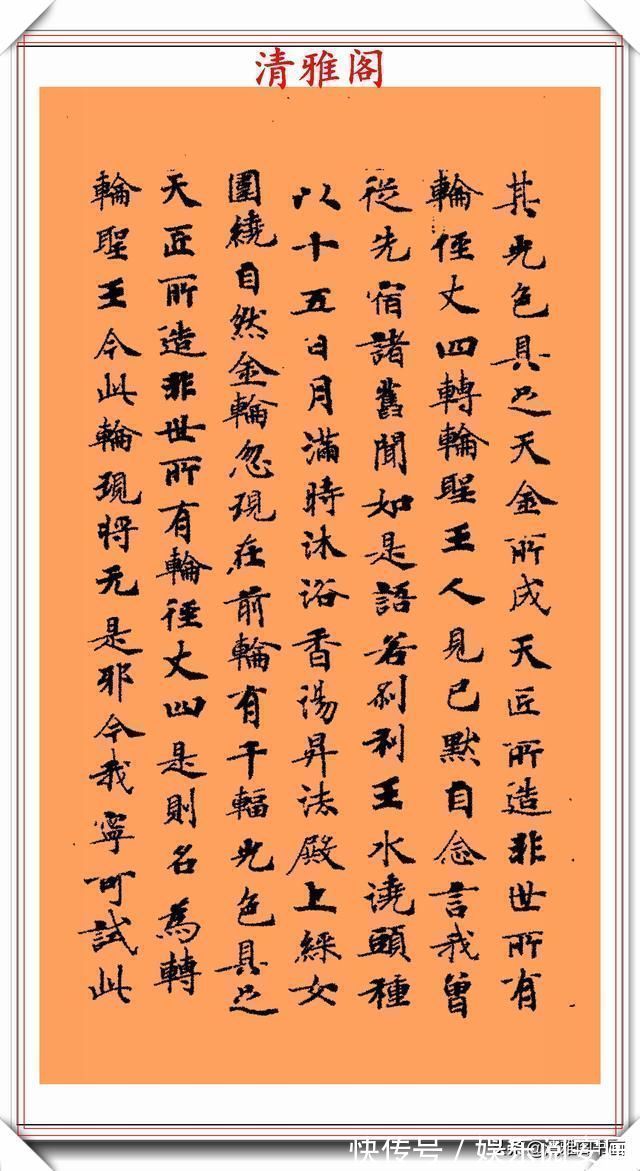 清雅阁
其光色具足天金所成天匠所造非世所有
輪徑丈四轉輪聖王人見已默自念言我曾
從先宿諸舊聞如是語若刹利王水澆頭種
以十五日月滿時沐浴香湯昇法殿上綵女
圍繞自然金輪忽現在前輪有千輻光色具足
天匠所造非世所有輪徑丈四是則名為轉
輪聖王今此輪現將无是耶今我寧可試此
快传号 /